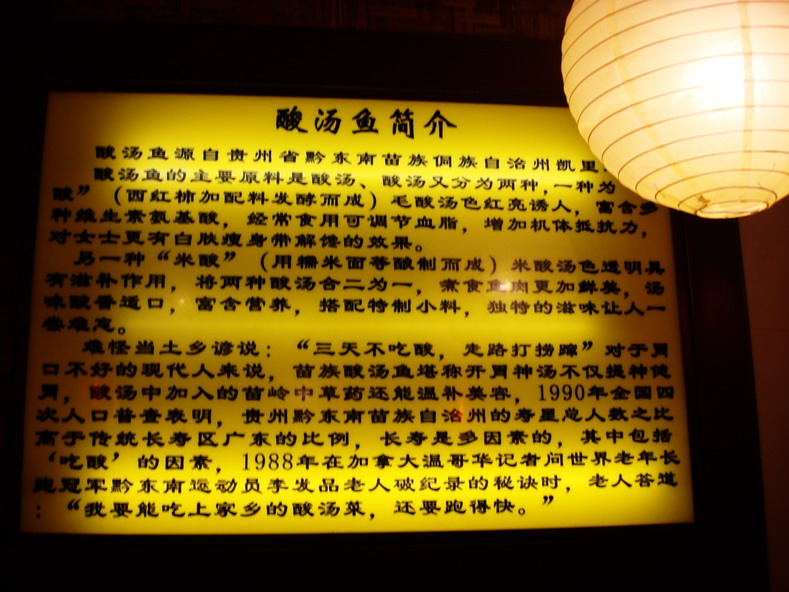 酸汤鱼简介
酸汤鱼源自贵州省黔东南苗族侗族自治州凯里
酸汤鱼的主要原料是酸汤、酸汤又分为两种，一种为
酸”（西红柿加配料发酵而成）毛酸汤色红亮诱人，富含多
种维生素氨基酸，经常食用可调节血脂，增加机体抵抗力，
对女士更有白肤瘦身带解馋的效果。
另一种“米酸”（用糯米面等酿制而成）米酸汤色透明具
有滋补作用，将两种酸汤合二为一，煮食鱼肉更加鲜美，汤
味酸香适口，富含营养，搭配特制小料，独特的滋味让人一
尝难忘。
难怪当土乡谚说：“三天不吃酸，走路打捞蹿”对于胃
口不好的现代人来说，苗族酸汤鱼堪称开胃神汤不仅提神健
胃，酸汤中加入的苗岭中草药还能温补美容，1990年全国四
次人口普查表明，贵州黔东南苗族自治州的寿星总人数之比
高于传统长寿区广东的比例，长寿是多因素的，其中包括
‘吃酸’的因素，1988年在加拿大温哥华记者问世界老年长
跑冠军黔东南运动员李发品老人破纪录的秘诀时，老人答道
：“我要能吃上家乡的酸汤菜，还要跑得快。”